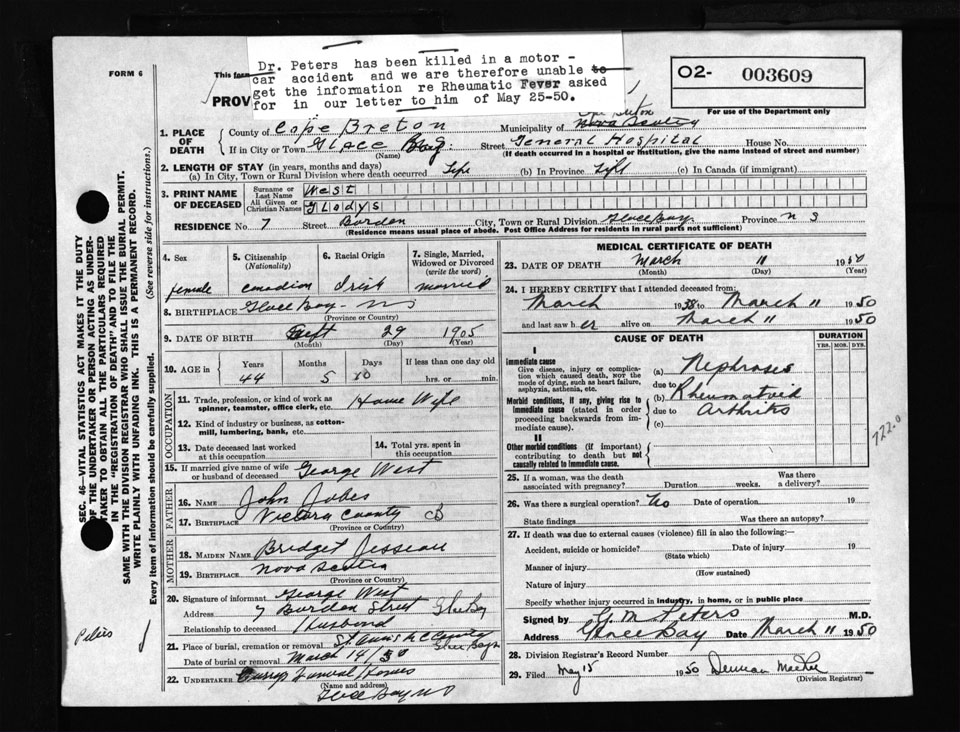 FORM 6
This form
PROV
Dr. Peters has been killed in a motor -
car accident and we are therefore unable to
get the information re Rheumatic Fever asked
for in our letter to him of May 25-50.
O2- 003609
For use of the Department only
1. PLACE OF DEATH County of Cape Breton Municipality of Nova Scotia
If in City or Town Glace Bay Street General Hospital House No.
(Name) (If death occurred in a hospital or institution, give the name instead of street and number)
2. LENGTH OF STAY (in years, months and days)
(a) In City, Town or Rural Division where death occurred Life (b) In Province Life (c) In Canada (if immigrant)
3. PRINT NAME OF DECEASED
Surname or Last Name West
All Given or Christian Names Glodys
RESIDENCE No. 7 Street Burdon City, Town or Rural Division Glace Bay Province N S
(Residence means usual place of abode. Post Office Address for residents in rural parts not sufficient)
4. Sex female
5. Citizenship (Nationality) Canadian
6. Racial Origin Irish
7. Single, Married, Widowed or Divorced (write the word) married
8. BIRTHPLACE Glace Bay - NS
(Province or County)
9. DATE OF BIRTH Sept 29 1905
(Month) (Day) (Year)
10. AGE in Years Months Days If less than one day old
44 5 10 hrs. or min.
OCCUPATION
11. Trade, profession, or kind of work as spinner, teamster, office clerk, etc. House Wife
12. Kind of industry or business, as cotton-mill, lumbering, bank, etc.
13. Date deceased last worked at this occupation
14. Total yrs. spent in this occupation
15. If married give name of wife or husband of deceased George West
FATHER
16. Name John Jobes
17. Birthplace Victoria County CB
(Province or County)
MOTHER
18. Maiden Name Bridget Jesseau
19. Birthplace Nova Scotia
(Province or County)
20. Signature of informant George West
Address 7 Burdon Street Glace Bay
Relationship to deceased Husband
21. Place of burial, cremation or removal Glace Bay
Date of burial or removal March 14/50
22. UNDERTAKER Currys Funeral Homes
(Name and address)
Glace Bay NS
MEDICAL CERTIFICATE OF DEATH
23. DATE OF DEATH March 11 1950
(Month) (Day) (Year)
24. I HEREBY CERTIFY that I attended deceased from:
March 1938 to March 11 1950
and last saw her alive on March 11 1950
CAUSE OF DEATH
DURATION
YRS. MOS. DYS.
I
Immediate cause
Give disease, injury or complication which caused death, NOT the mode of dying, such as heart failure, asphyxia, asthenia, etc.
(a) Nephroses
due to
Morbid conditions, if any, giving rise to immediate cause (stated in order proceeding backwards from immediate cause).
(b) Rheumatoid
due to Arthritis
(c)
722.0
II
Other morbid conditions (if important) contributing to death but not causally related to immediate cause.
25. If a woman, was the death associated with pregnancy? Duration weeks. Was there a delivery?
26. Was there a surgical operation? No Date of operation 19
State findings Was there an autopsy?
27. If death was due to external causes (violence) fill in also the following:—
Accident, suicide or homicide? Date of injury 19
(State which)
Manner of injury
(How sustained)
Nature of injury
Specify whether injury occurred in industry, in home, or in public place
Signed by G. M. Peters M.D.
Address Glace Bay Date March 11 1950
28. Division Registrar's Record Number
29. Filed May 15 1950
(Division Registrar)
SEC. 46—VITAL STATISTICS ACT MAKES IT THE DUTY
OF THE UNDERTAKER OR PERSON ACTING AS UNDER-
TAKER TO OBTAIN ALL THE PARTICULARS REQUIRED
IN THE "REGISTRATION OF DEATH" AND TO FILE THE
SAME WITH THE DIVISION REGISTRAR WHO SHALL ISSUE THE BURIAL PERMIT.
WRITE PLAINLY WITH UNFADING INK. THIS IS A PERMANENT RECORD.
Every item of information should be carefully supplied. (See reverse side for instructions.)
Peters